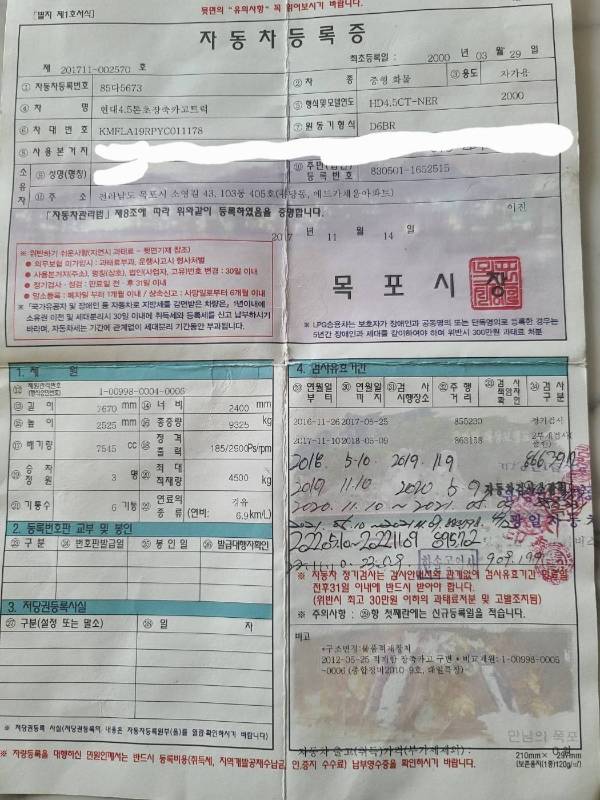 [별지 제1호서식]
뒷면의 "유의사항" 꼭 읽어보시기 바랍니다.
자동차등록증
제 201711-002570 호
최초등록일 : 2000 년 03 월 29 일
① 자동차등록번호 85다5673
② 차 종 중형 화물
③ 용도 자가용
④ 차 명 현대4.5톤초장축카고트럭
⑤ 형식및모델연도 HD4.5CT-NER 2000
⑥ 차대번호 KMFLA19RPYC011178
⑦ 원동기형식 D6BR
⑧ 사용본거지
소유자
⑨ 성명(명칭)
⑩ 등록번호 830501-1652515
⑪ 주 소 전라남도 목포시 소영길 43, 103동 405호
이전
「자동차관리법」 제8조에 따라 위와같이 등록하였음을 증명합니다.
2017 년 11 월 14 일
※ 위반하기 쉬운사항(지연시 과태료 - 뒷면기재 참조)
• 의무보험 미가입시 : 과태료부과, 운행사고시 형사처벌
• 사용본거지(주소), 명칭(상호), 법인(사업자, 고유)번호 변경 : 30일 이내
• 정기검사·점검 : 만료일 전·후 31일 이내
• 말소등록 : 폐차일 부터 1개월 이내 / 상속신고 : 사망일로부터 6개월 이내
※ "국가유공자 및 장애인 등 자동차로 지방세를 감면받은 차량은, 1년이내에
소유권 이전 및 세대분리시 30일 이내에 취득세와 등록세를 신고 납부하시기
바라며, 자동차세는 기간에 관계없이 세대분리 기간동안 부과됩니다.
목포시장
※ LPG승용차는 보호자가 장애인과 공동명의 또는 단독명의로 등록한 경우는
5년간 장애인과 세대를 같이하여야 하며 위반시 300만원 과태료 처분
1. 제 원
⑫ 제원관리번호
(형식승인번호)
1-00998-0004-0005
⑬ 길 이 7670 mm
⑭ 너 비 2400 mm
⑮ 높 이 2525 mm
⑯ 총중량 9325 kg
⑰ 배기량 7545 cc
⑱ 정격출력 185/2900Ps/rpm
⑲ 승차정원 3 명
⑳ 최대적재량 4500 kg
㉑ 기통수 6 기통
㉒ 연료의 종류 경유 (연비: 6.9km/L)
2. 등록번호판 교부 및 봉인
㉓ 구분
㉔ 번호판발급일
㉕ 봉인일
㉖ 발급대행자확인
3. 저당권등록사실
㉗ 구분(설정 또는 말소)
㉘ 일 자
※ 저당권등록 사실(저당권등록의 내용은 자동차등록원부(을)를 열람·확인하시기 바랍니다.
4. 검사유효기간
㉙ 연월일부터
㉚ 연월일까지
㉛ 검사시행장소
㉜ 주행거리
㉝ 검사책임자확인
㉞ 검사구분
2016-11-26 2017-05-25 855230 정기검사
2017-11-10 2018-05-09 863158
2018 5-10 2019.11.9
2019 11.10 2020 5.9
2020.11.10 ~ 2021
※ 자동차 정기검사는 검사안내서와 관계없이 검사유효기간 만료일
전후31일 이내에 반드시 받아야 합니다.
(위반시 최고 30만원 이하의 과태료처분 및 고발조치됨)
※ 주의사항 : ㉙항 첫째란에는 신규등록일을 적습니다.
비고
*구조변경:물품적재장치
2012-05-25 적재함 장축카고 구변 *비고제원: 1-00998-0005
-0006
만남의 폭포
자동차 출고(취득)가격(부가세제외) : 0 원
※ 차량등록을 대행하신 민원인께서는 반드시 등록비용(취득세, 지역개발공채수납금, 인,증지 수수료) 납부영수증을 확인하시기 바랍니다.
210mm× 297mm
(보존용지(1종)120g/㎡)